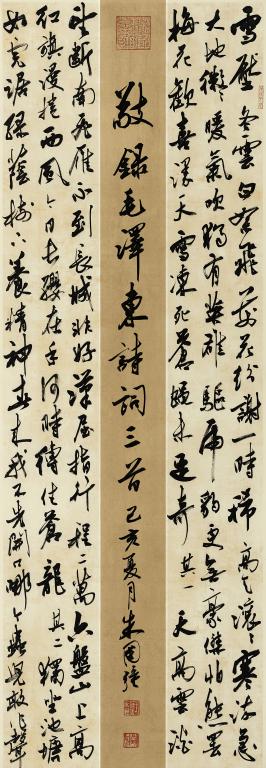 雪壓冬雲白絮飛萬花紛謝一時稀高天滾々寒流急
大地微々暖氣吹獨有英雄驅虎豹更無豪傑怕熊羆
梅花歡喜漫天雪凍死蒼蠅未足奇其一天高雲淡
敬錄毛澤東詩詞三首己亥夏月朱國強
望斷南飛雁不到長城非好漢屈指行程二萬六盤山上高
紅旗漫捲西風今日長纓在手何時縛住蒼龍其二獨坐池塘
如虎踞綠蔭樹下養精神春來我不先開口哪个蟲兒敢作聲